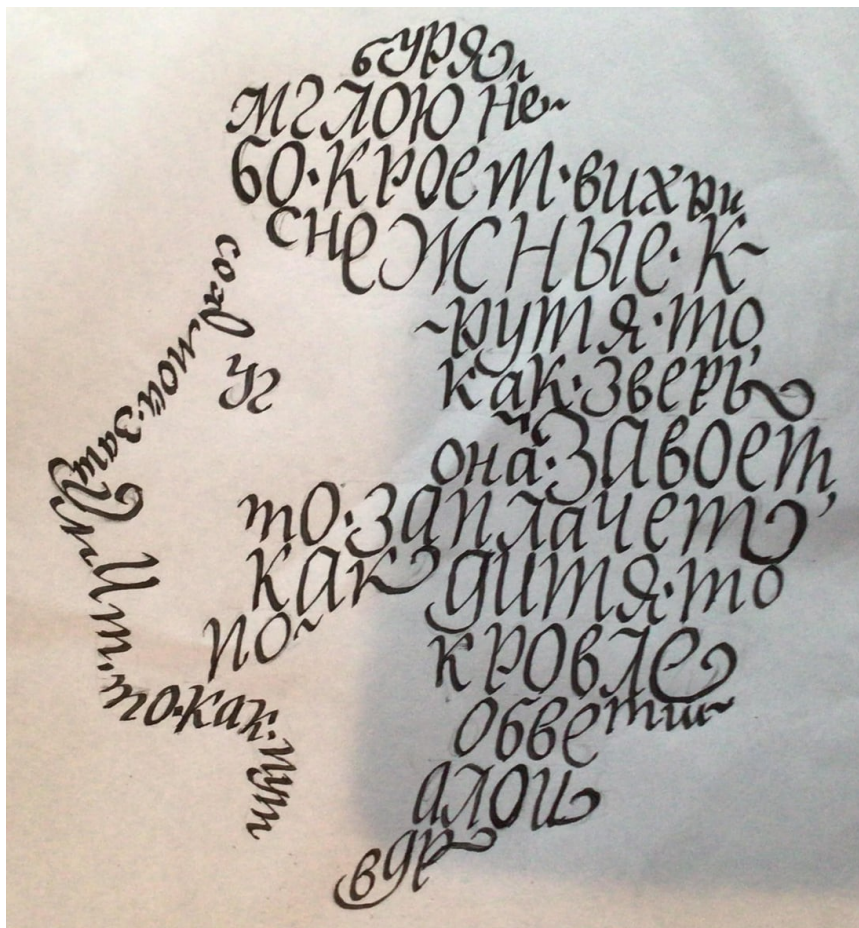 буря
мглою не-
бо·кроет·вихри
снежные·к-
-рутя·то
как·зверь
она·завоет
то·заплачет,
как дитя·то
по- кровле
обветш-
алой
вдр
уг
соломой·зашумит·
то·как·пут